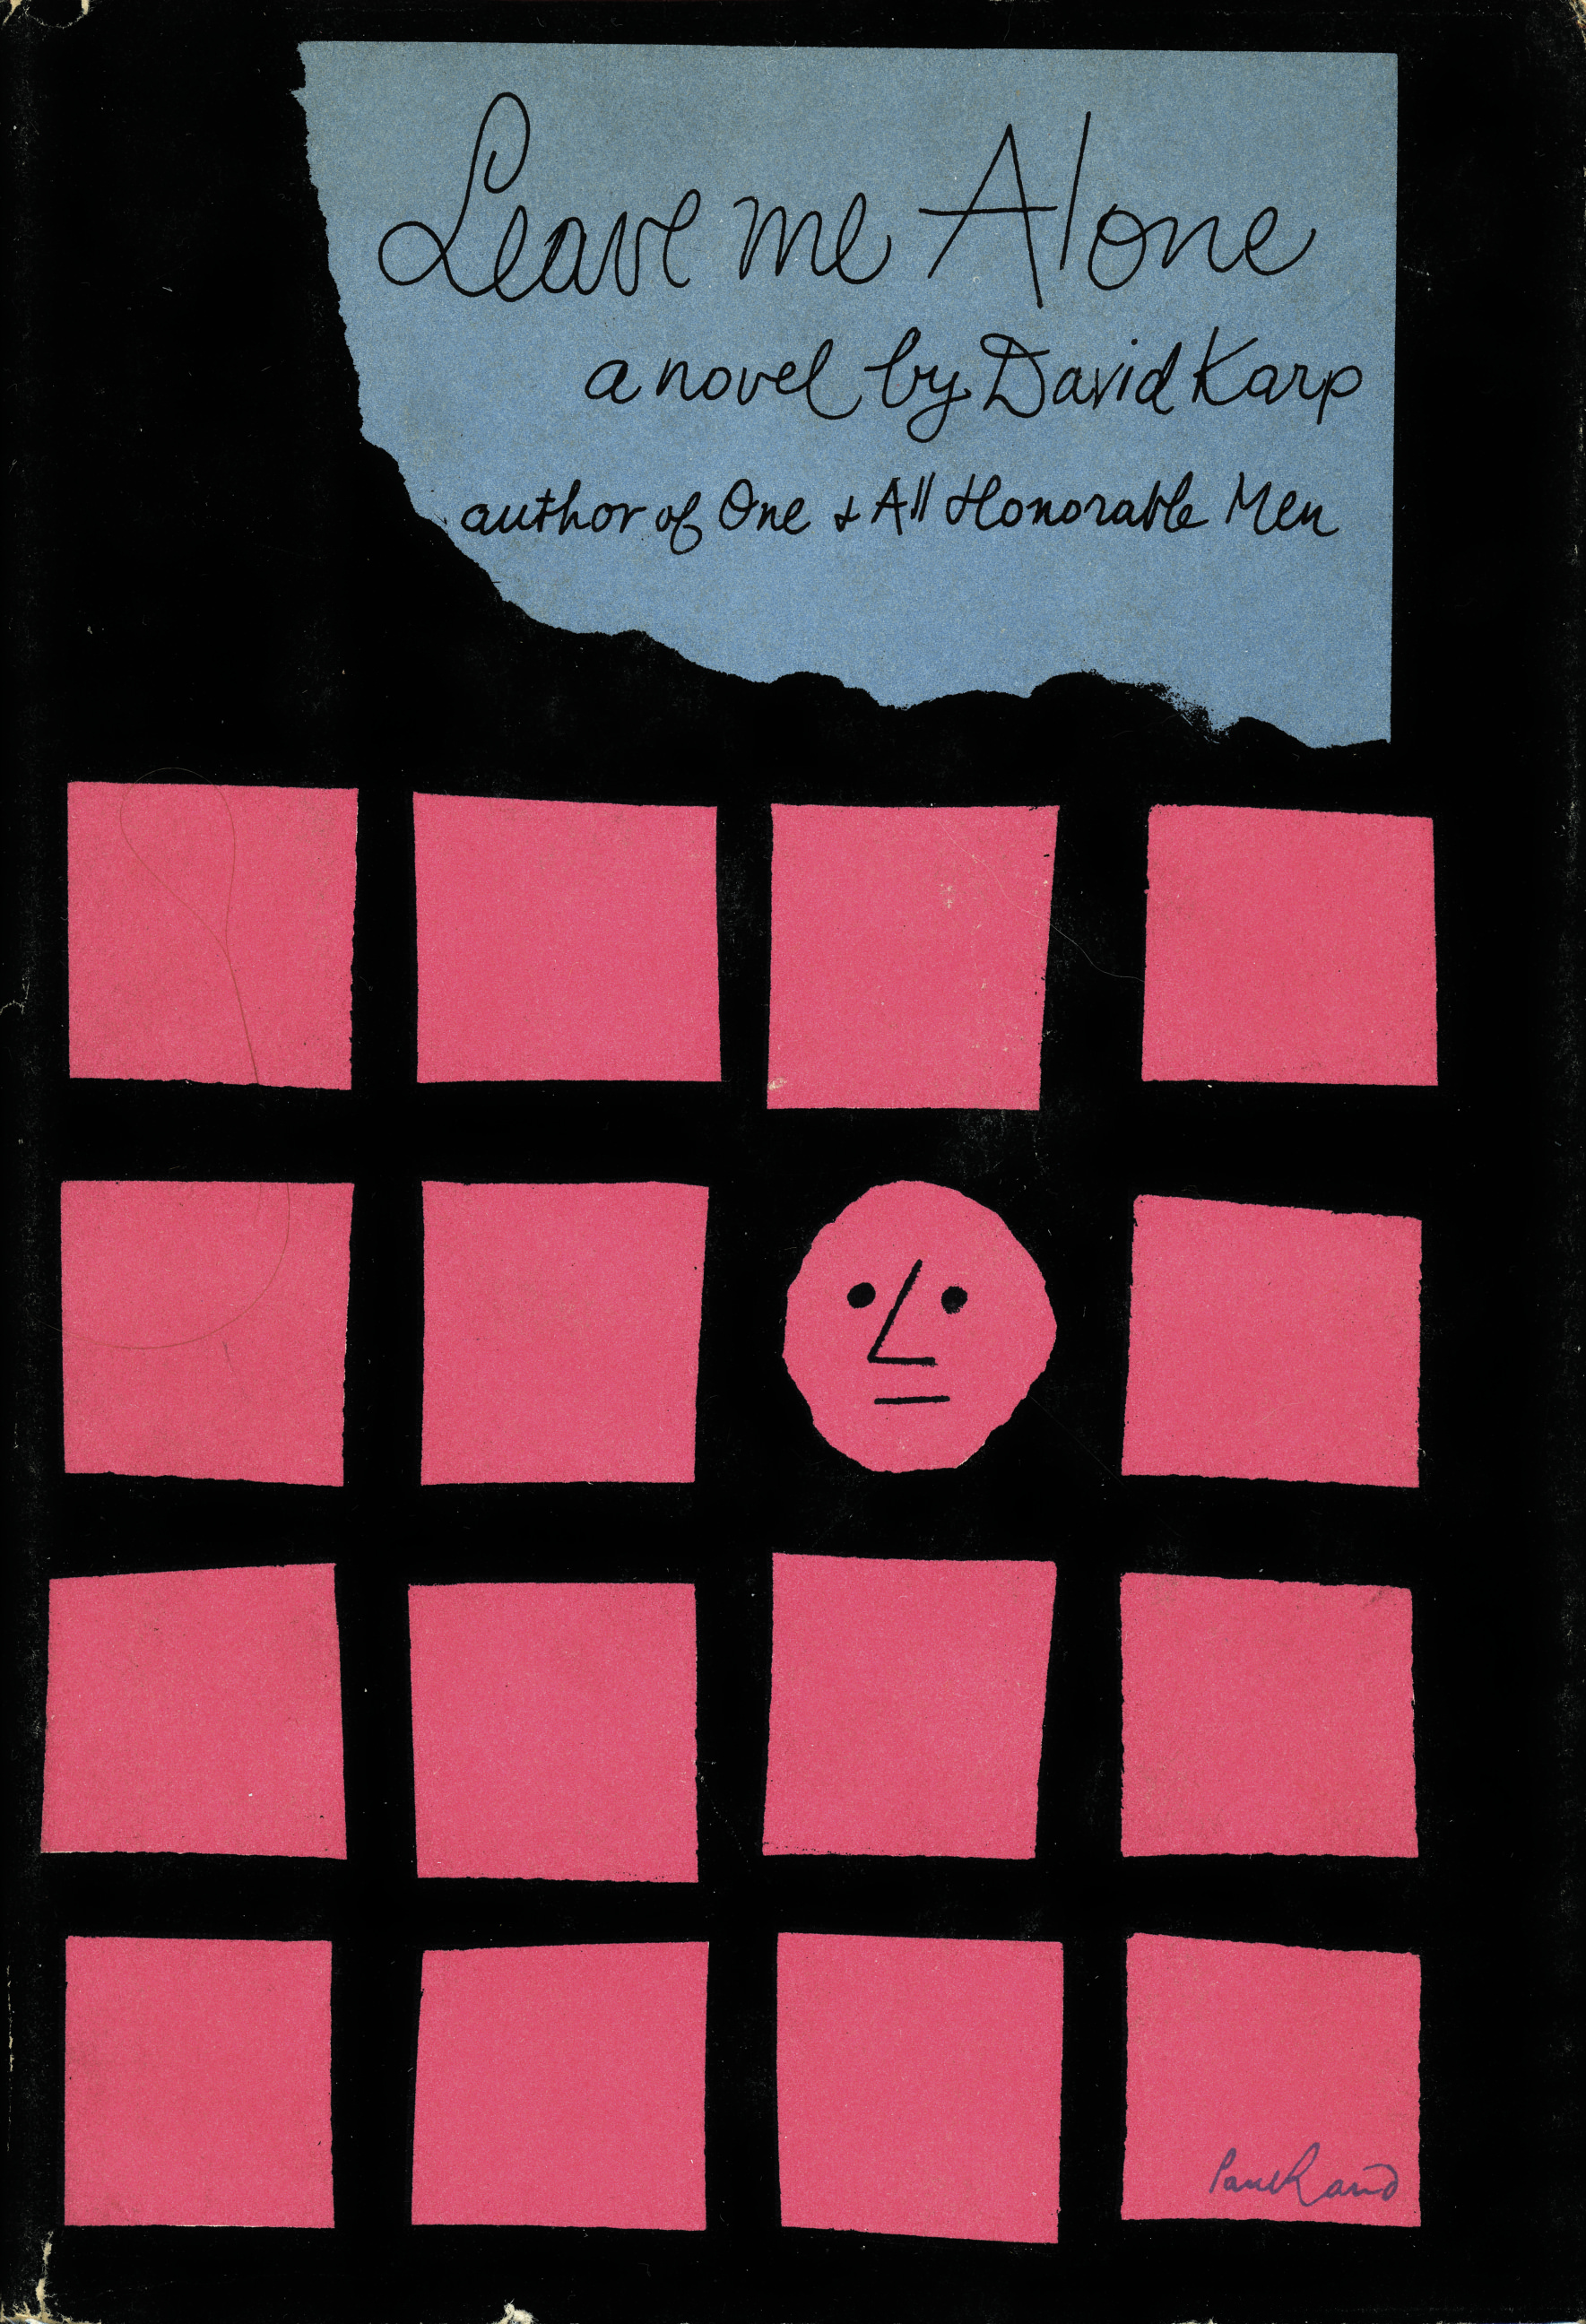 Leave me Alone
a novel by David Karp
author of One & All Honorable Men
Paul Rand